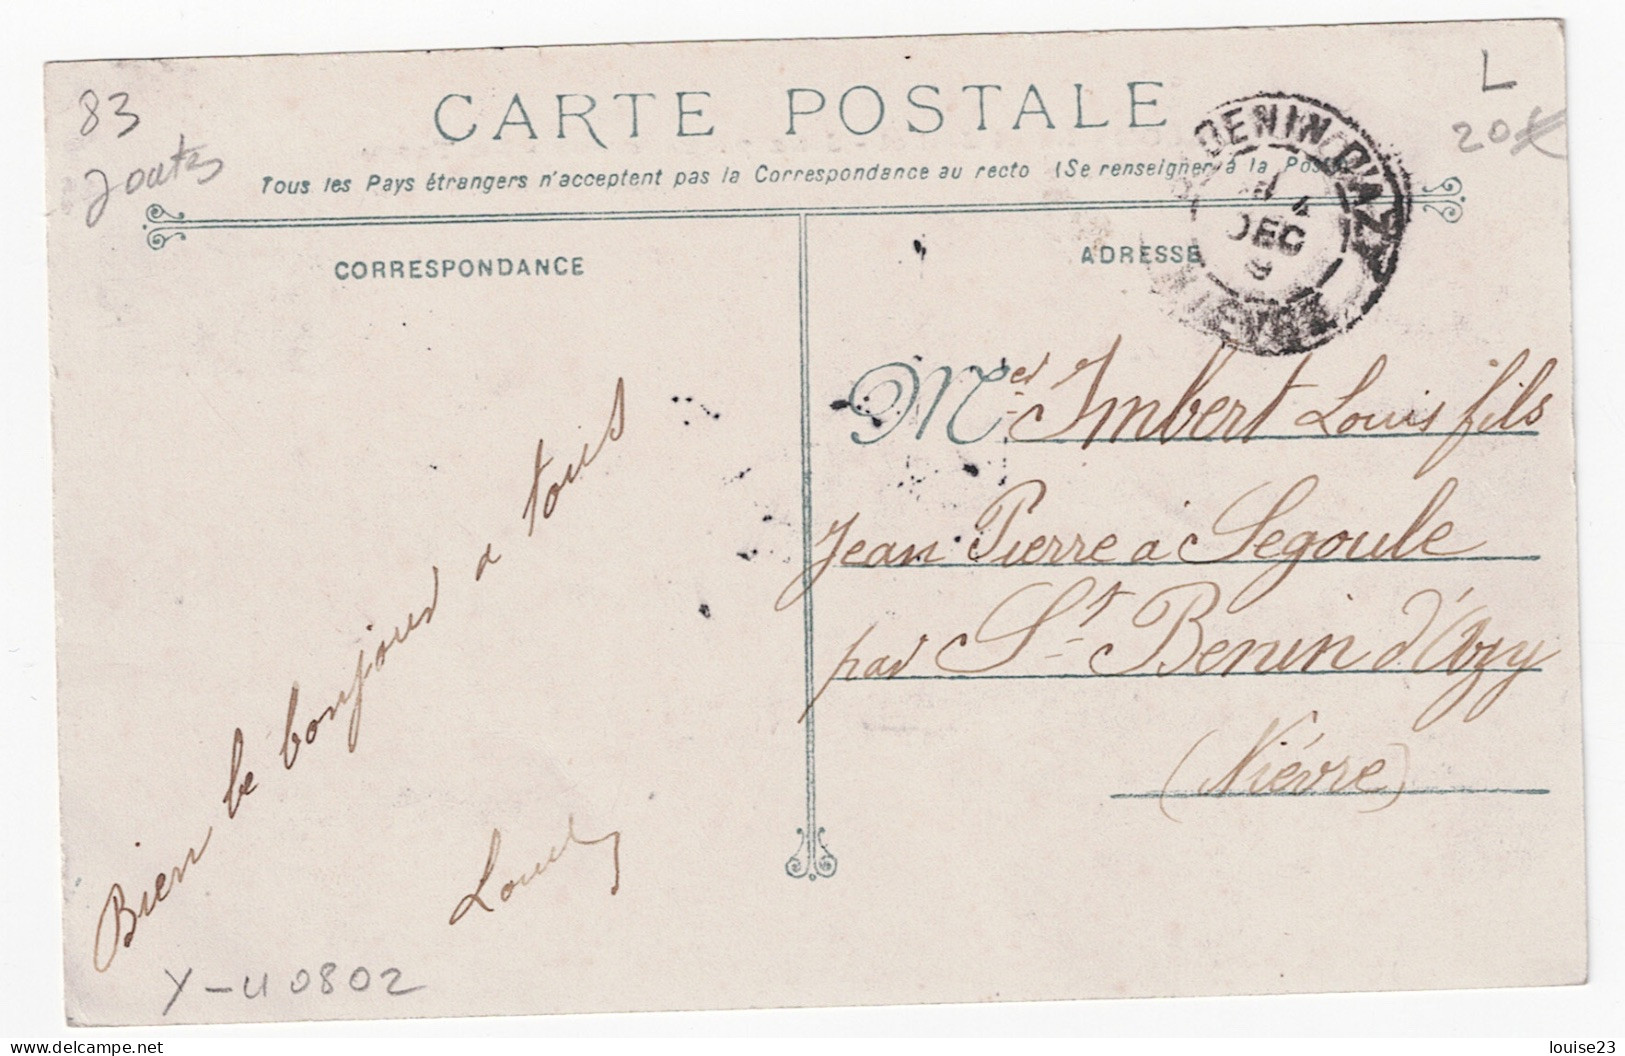 83
Joutes
L
20€
CARTE POSTALE
Tous les Pays étrangers n'acceptent pas la Correspondance au recto (Se renseigner à la Poste)
BENIN D'AZY
DEC
NIEVRE
CORRESPONDANCE
ADRESSE
Bien le bonjour a tous
Louis
Mr Imbert Louis fils
Jean Pierre à Segoule
par St Benin d'Azy
(Nièvre)
X-U0802
delcampe.net
louise23